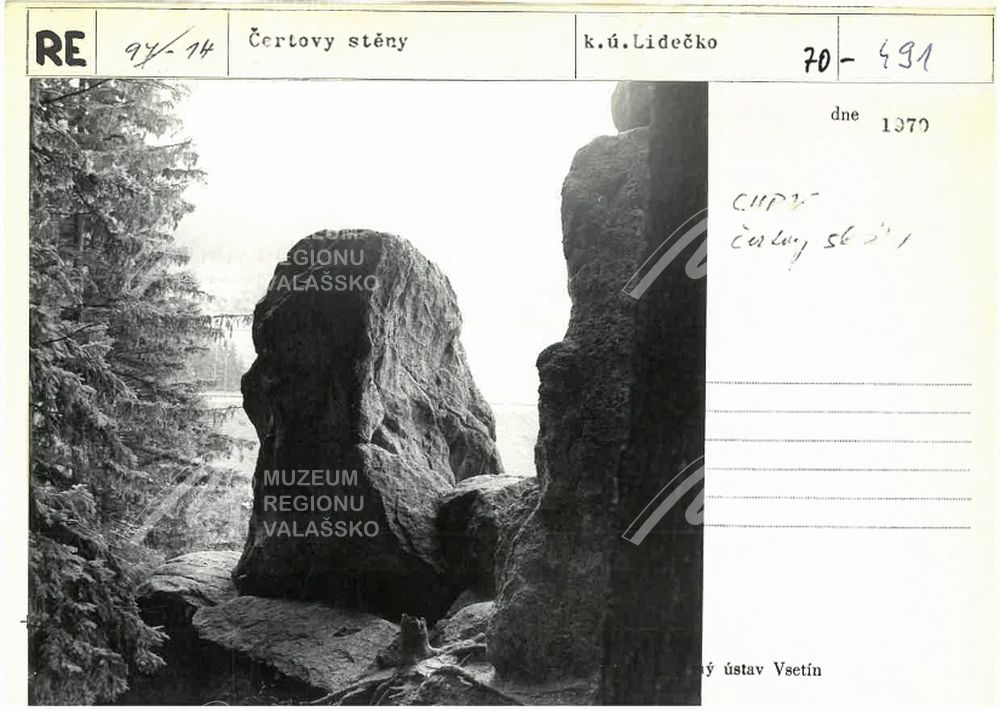 RE 97-14 Čertovy stěny k.ú.Lidečko 70-491
dne 1970
Čertovy
MUZEUM
REGIONU
VALAŠSKO
MUZEUM
REGIONU
VALAŠSKO
ý ústav Vsetín